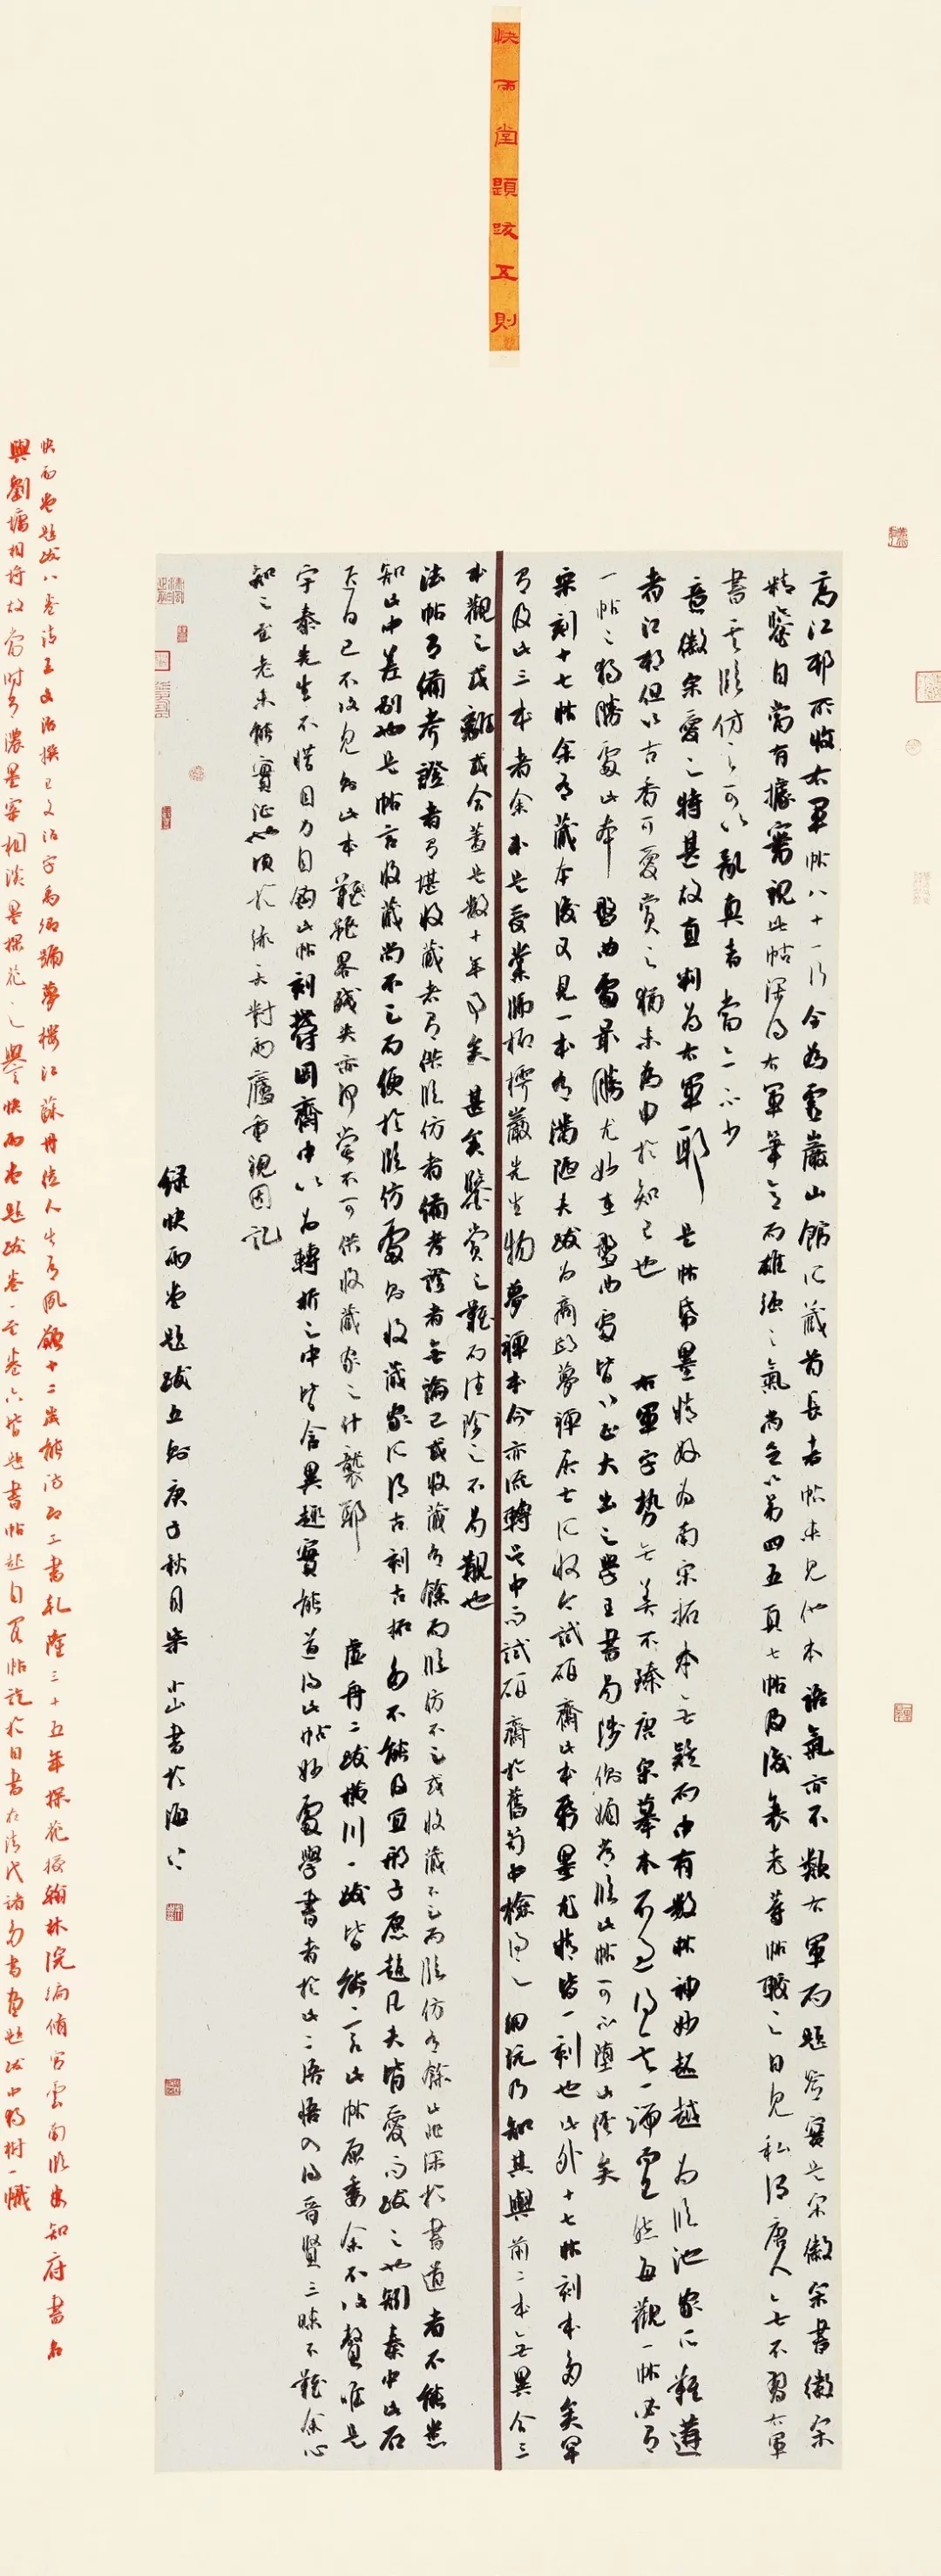 快雨堂題跋五則
高江邨所收右軍帖八十一行今為雲巖山館所藏首長者帖未見他本語氣亦不類右軍而題簽實是宋徽宗書徽宗
精鑒自當有據審視此帖深得右軍筆意而雄強之氣尚在第四五頁七帖及後袁老等帖較之自見私謂唐人無不習右軍
書其臨仿之可以亂真者當亦不少
意徽宗愛之特甚故直判為右軍耶 是帖紙墨精好為南宋拓本無疑而中有數帖神妙超越為臨池家所難遘
者江邨但以古香可愛賞之猶未為申於知己也 右軍字勢無美不臻唐宋摹本不過得其一端耳然每觀一帖必有
一帖之獨勝處此本 盤曲處最勝尤妙在盤曲處皆以正大出之學王書勿涉側媚者臨此帖可不墮山徑矣
宋刻十七帖余有藏本後又見一本有滿陋夫跋為商邱夢禪居士所收今試硯齋此本形墨尤精皆一刻也此外十七帖刻本多矣罕
有及此三本者余本是受業師柘樗巖先生物夢禪本今亦流轉吳中而試硯齋於舊笥中檢得之細玩乃知其與前二本無異合三
本觀之或離或合蓋是數十年事矣甚矣鑒賞之難而佳珍之不易覯也
法帖有備考證者有堪收藏者有供臨仿者備考證者無論已或收藏有餘而臨仿不足或收藏不足而臨仿有餘此非深於書道者不能悉
知此中差別也是帖言收藏尚不足而便於臨仿處為收藏家所得古刻古拓多不能及宜邢子愿趙凡夫皆愛而跋之也關秦中此石
在日已不復見為此本雖紙畧殘失亦何嘗不可供收藏家之什襲耶 虛舟二跋橫川一跋皆備言此帖原委余不復贅唯是
宇泰先生不惜目力自鉤此帖刻鬱岡齋中以為轉折之中皆含異趣實能道得此帖妙處學書者於此二語悟入得晉賢三昧不難余心
知之至老未能實証也頃於綠天對雨廬重視因記
錄快雨堂題跋五則庚子秋月宋小山書於海上
快雨堂題跋八卷清王文治撰王文治字禹卿號夢樓江蘇丹徒人生有夙慧十二歲能詩即工書乾隆三十五年探花授翰林院編修官雲南臨安知府書名
與劉墉相埒故當時有濃墨宰相淡墨探花之譽快雨堂題跋卷一至卷六皆題書帖起自閣帖訖於日書在清代諸多書畫題跋中獨樹一幟